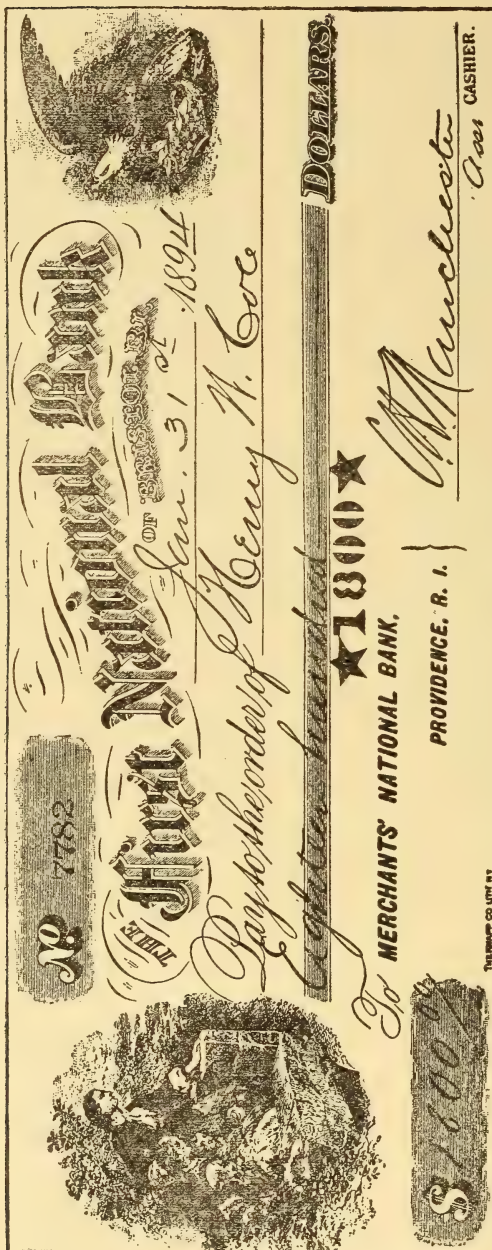 No. 7782
THE First National Bank
OF BRISTOL, R.I.
Jan. 31st 1894
Pay to the order of Henry W. Cole
Eighteen hundred DOLLARS.
★1800★
To MERCHANTS' NATIONAL BANK,
PROVIDENCE, R. I. }
$1800 00/
Asst CASHIER.